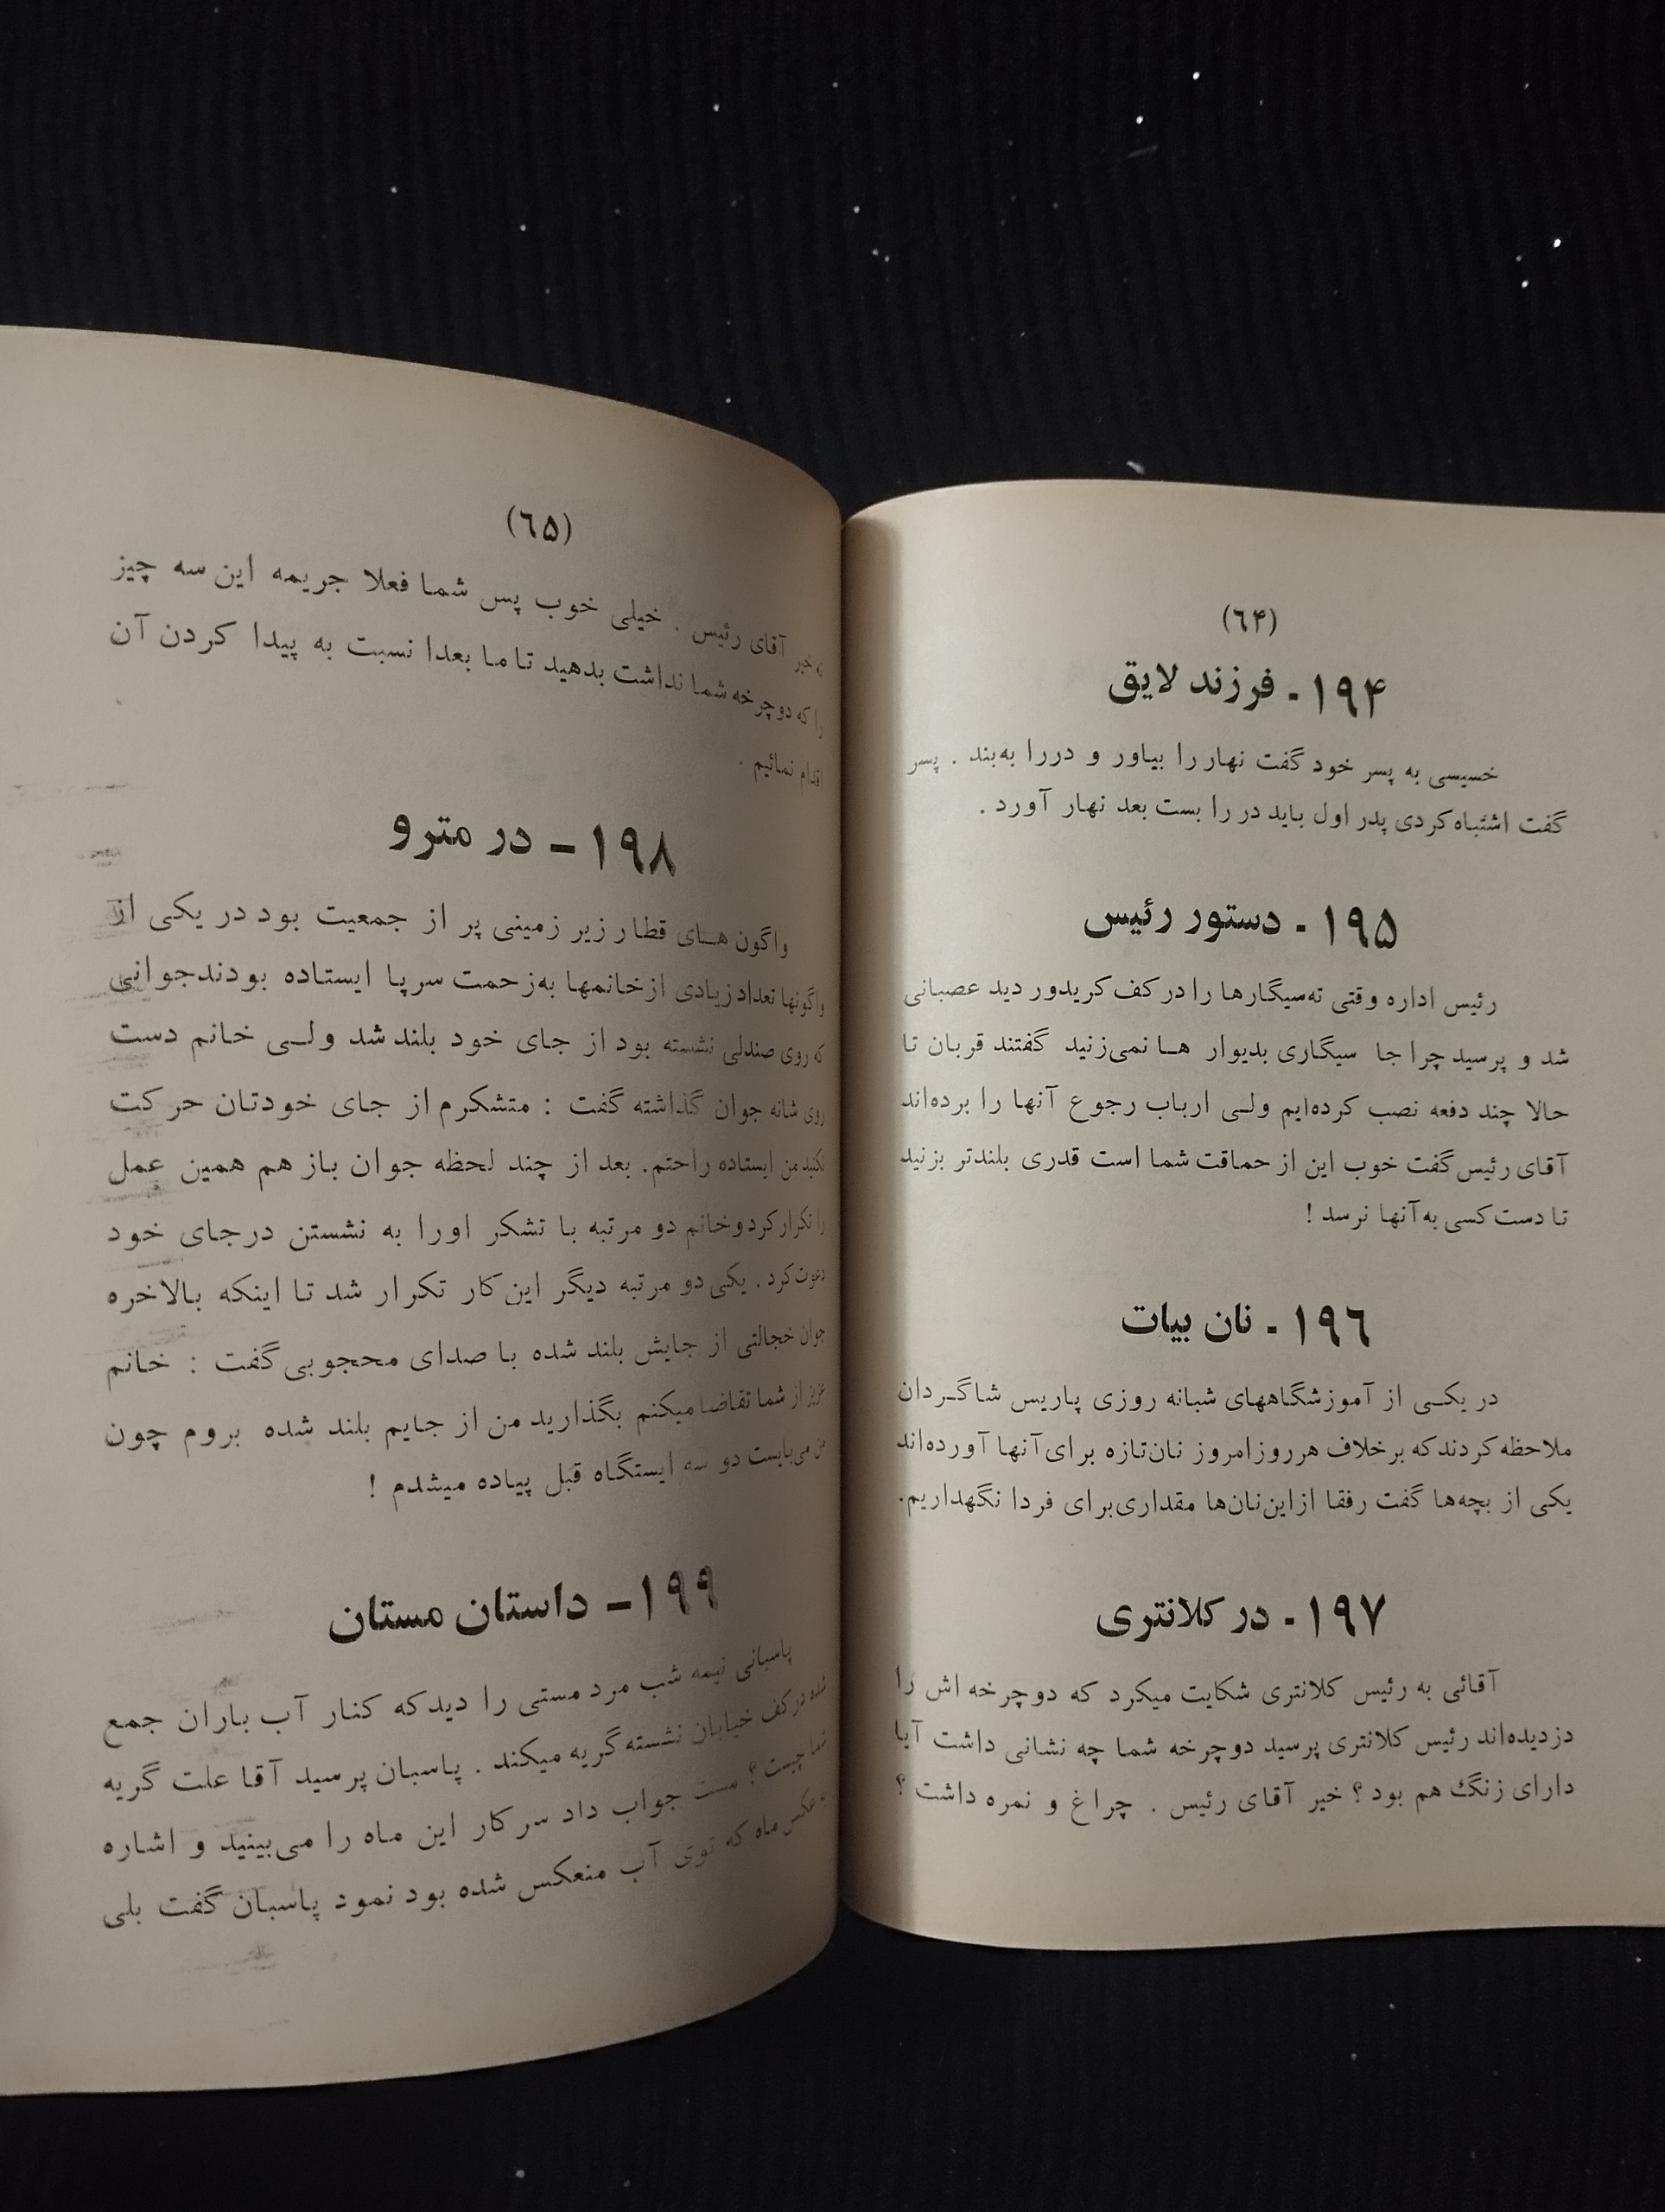 (٦۴)
١٩۴ - فرزند لایق
خسیسی به پسر خود گفت نهار را بیاور و در را به‌بند . پسر
گفت اشتباه کردی پدر اول باید در را بست بعد نهار آورد .
١٩۵ - دستور رئیس
رئیس اداره وقتی ته‌سیگارها را در کف کریدور دید عصبانی
شد و پرسید چرا جا سیگاری بدیوار هـا نمی‌زنید گفتند قربان تا
حالا چند دفعه نصب کرده‌ایم ولـی ارباب رجوع آنها را برده‌اند
آقای رئیس گفت خوب این از حماقت شما است قدری بلندتر بزنید
تا دست کسی به آنها نرسد !
١٩٦ - نان بیات
در یکـی از آموزشگاههای شبانه روزی پاریس شاگـردان
ملاحظه کردند که برخلاف هرروز امروز نان‌تازه برای آنها آورده‌اند
یکی از بچه‌ها گفت رفقا از این‌نان‌ها مقداری برای فردا نگهداریم.
١٩٧ - در کلانتری
آقائی به رئیس کلانتری شکایت میکرد که دوچرخه اش را
دزدیده‌اند رئیس کلانتری پرسید دوچرخه شما چه نشانی داشت آیا
دارای زنگ هم بود ؟ خیر آقای رئیس . چراغ و نمره داشت ؟
(٦۵)
نه خیر آقای رئیس . خیلی خوب پس شما فعلا جریمه این سه چیز
را که دوچرخه شما نداشت بدهید تا ما بعدا نسبت به پیدا کردن آن
اقدام نمائیم .
١٩٨ - در مترو
واگون هـای قطار زیر زمینی پر از جمعیت بود در یکی از
واگونها تعداد زیادی از خانمها به‌زحمت سرپا ایستاده بودند جوانی
که روی صندلی نشسته بود از جای خود بلند شد ولـی خانم دست
روی شانه جوان گذاشته گفت : متشکرم از جای خودتان حرکت
نکنید من ایستاده راحتم. بعد از چند لحظه جوان باز هم همین عمل
را تکرار کرد و خانم دو مرتبه با تشکر او را به نشستن در جای خود
دعوت کرد . یکی دو مرتبه دیگر این کار تکرار شد تا اینکه بالاخره
جوان خجالتی از جایش بلند شده با صدای محجوبی گفت : خانم
عزیز از شما تقاضا میکنم بگذارید من از جایم بلند شده بروم چون
من می‌بایست دو سه ایستگاه قبل پیاده میشدم !
١٩٩ - داستان مستان
پاسبانی نیمه شب مرد مستی را دید که کنار آب باران جمع
شده در کف خیابان نشسته گریه میکند . پاسبان پرسید آقا علت گریه
شما چیست ؟ مست جواب داد سرکار این ماه را می‌بینید و اشاره
به عکس ماه که توی آب منعکس شده بود نمود پاسبان گفت بلی